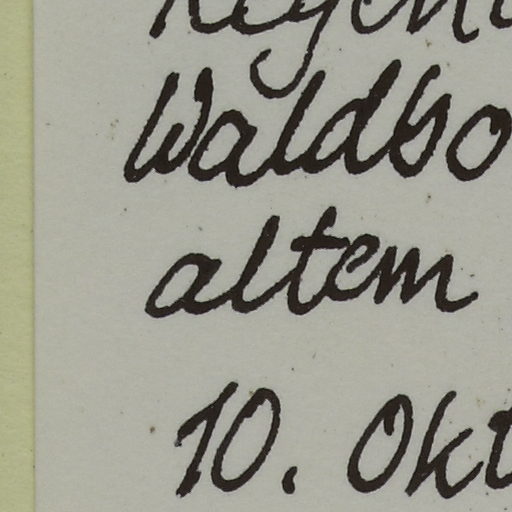 Waldbo
altem
10. Okt